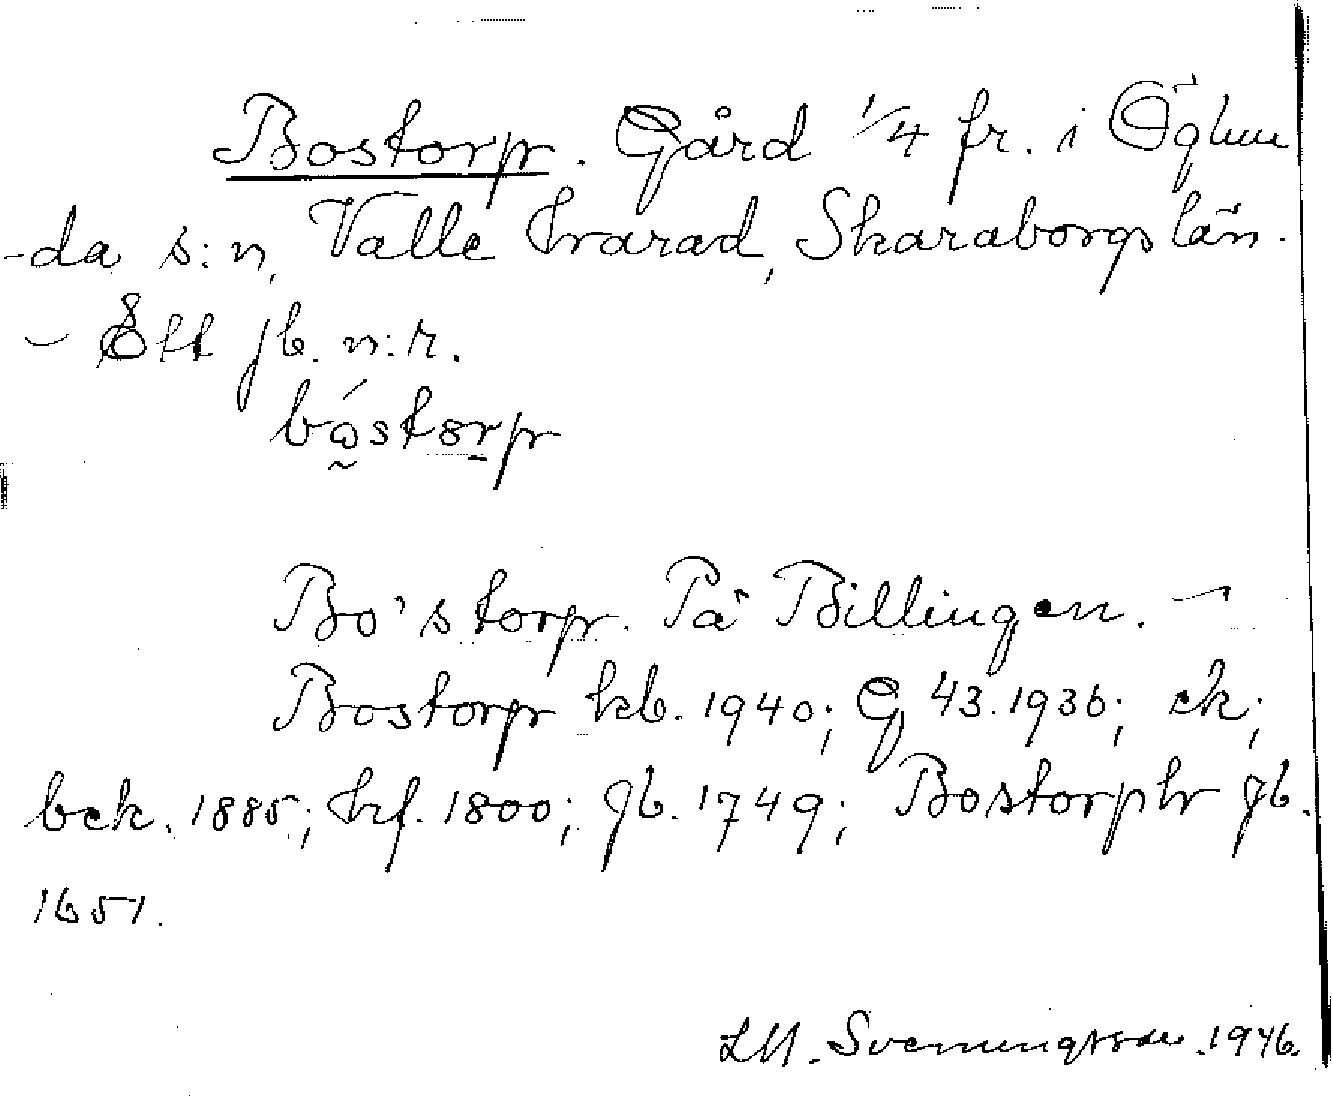 Bostorp. Gård 1/4 fr. i Öglun
-da s:n, Valle härad, Skaraborgs län.
- Ett jb. n:r.
bóstorp
Bo'storp. På Billingen. -
Bostorp kb. 1940; G 43. 1936; ek;
bek. 1885; hf. 1800; jb. 1749; Bostorph jb.
1651.
LM. Svenungsson. 1946.